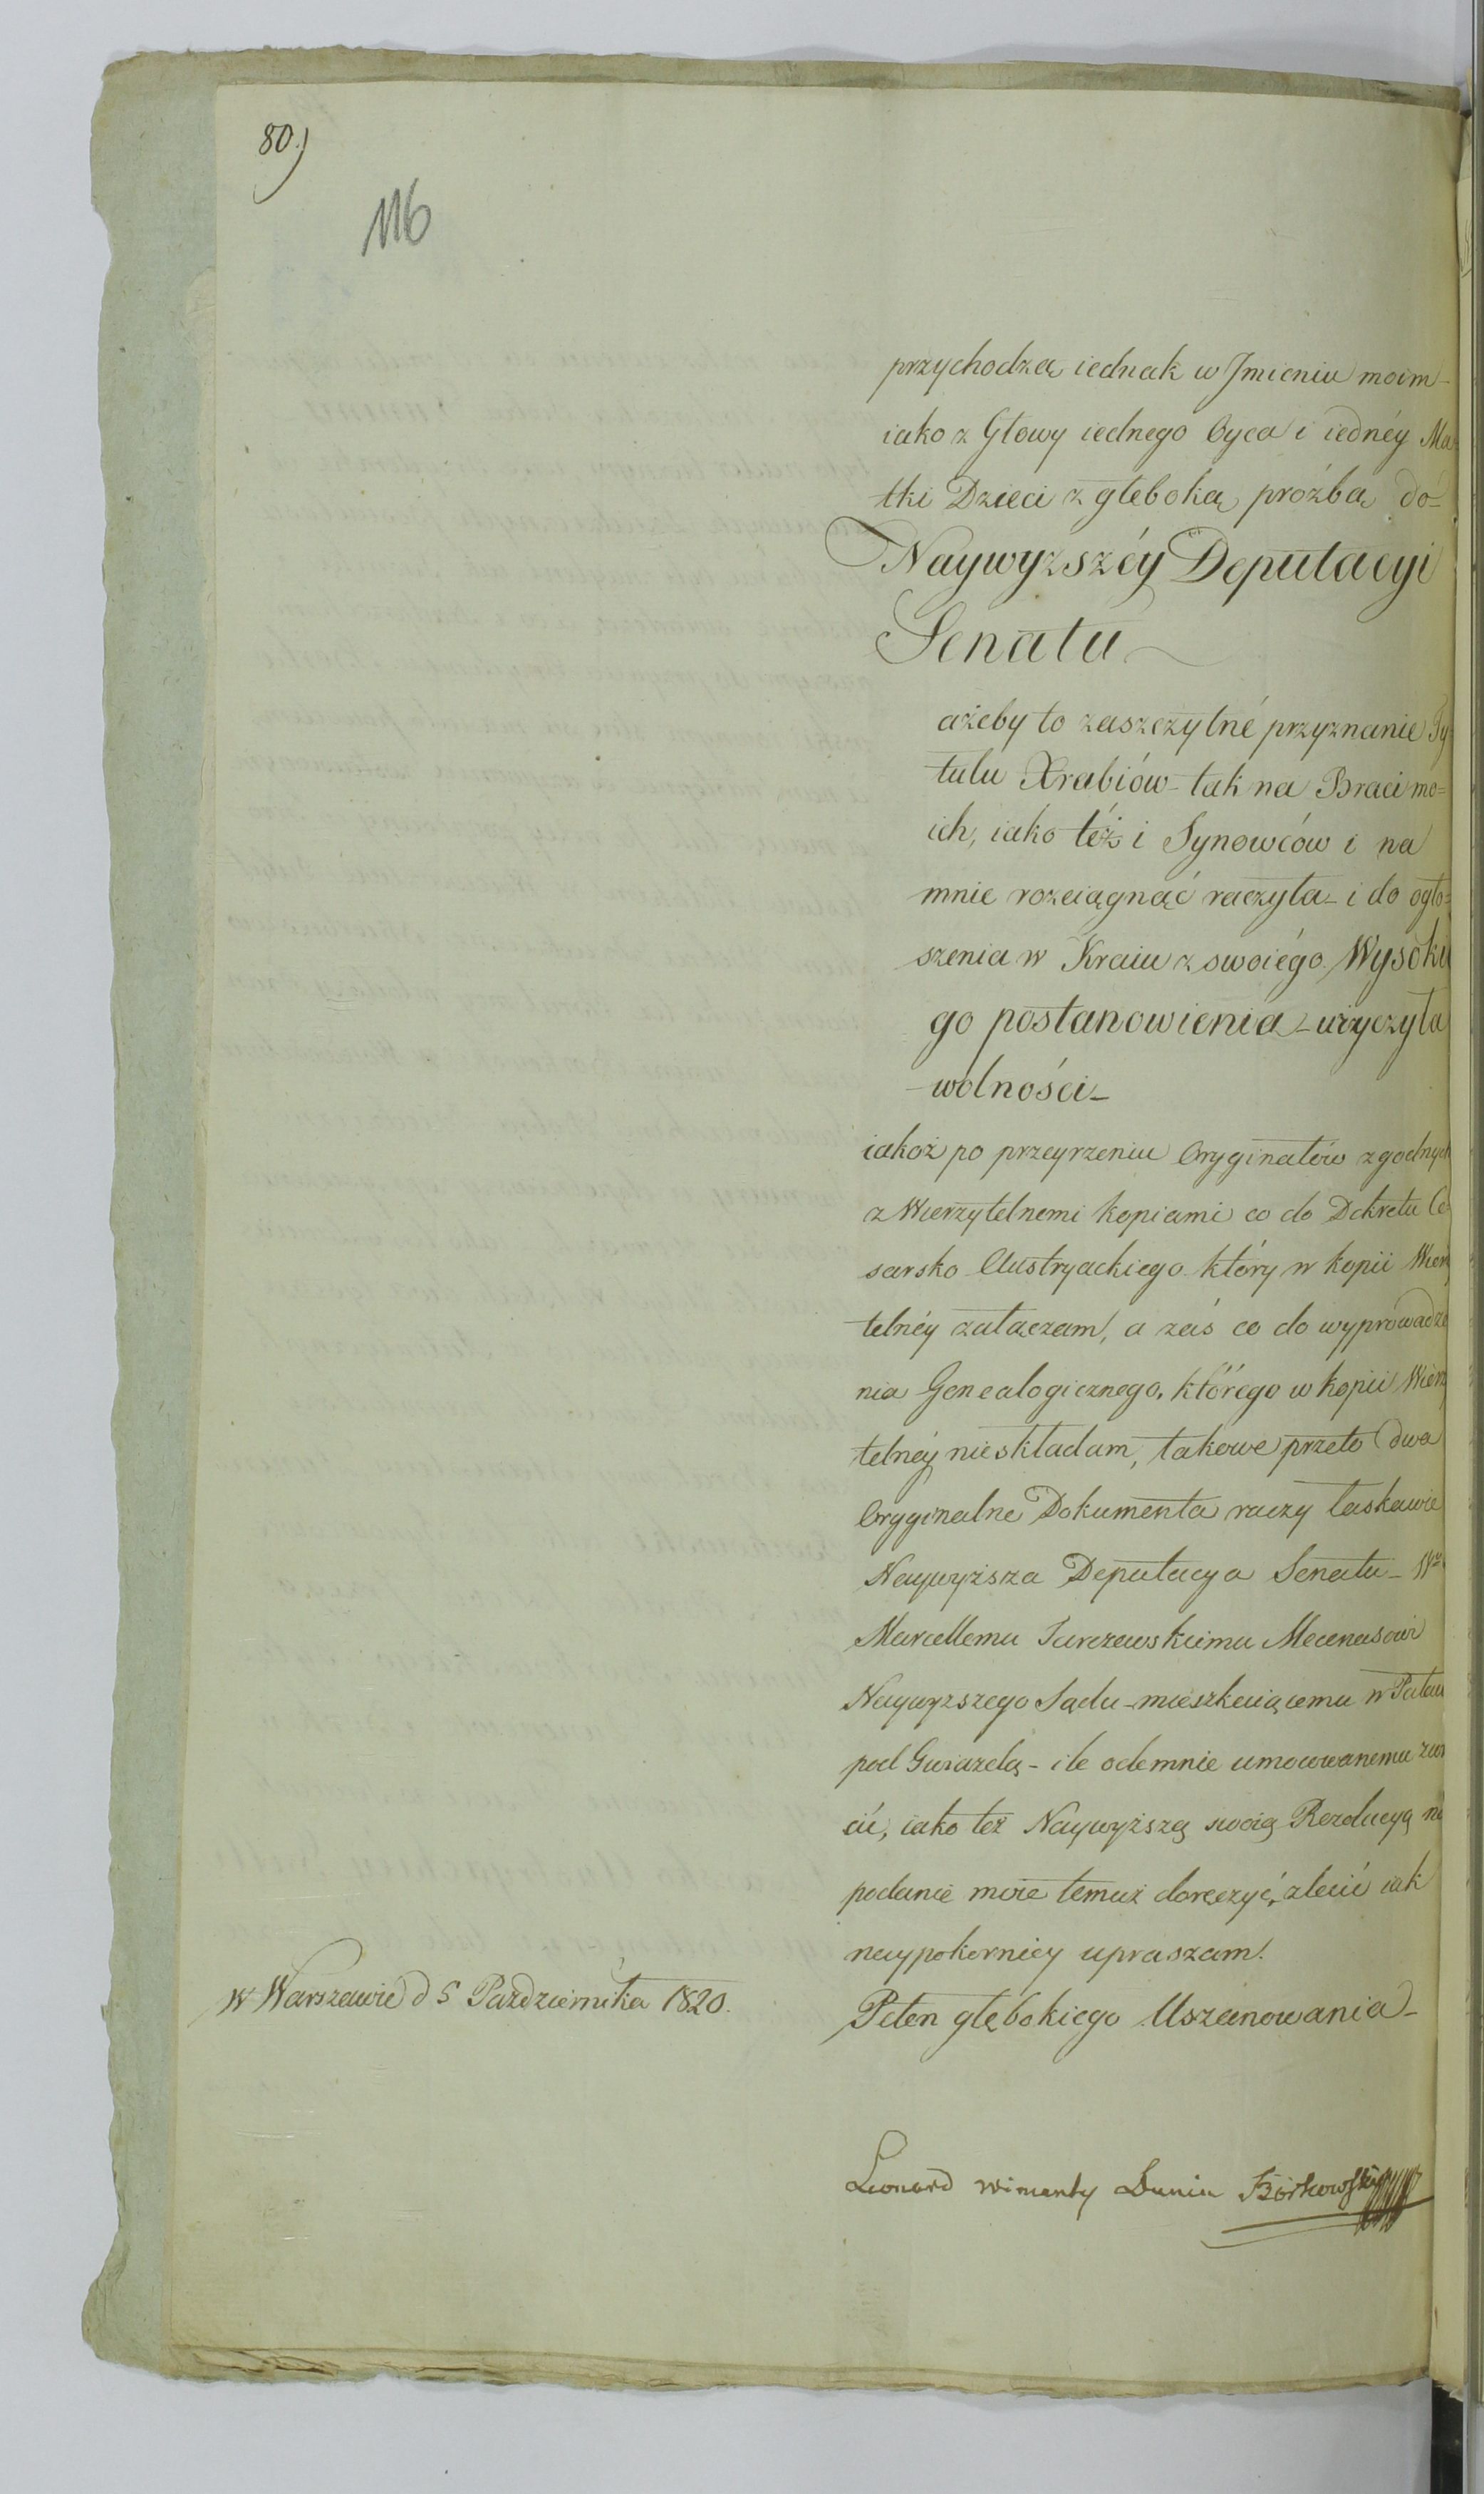 80.)
116
przychodzą iednak w Jmieniu moim-
iako z Głowy iednego Oyca i iednéy Ma
tki Dzieci z głęboką prożbą do-
Naywyzszéy Deputacyi
Senatu
ażeby to zaszczytné przyznanie Ty
tulu Xrabiów - tak na Braci mo=
ich, iako téż i Synowców i na
mnie rozciągnąć raczyła - i do ogło=
szenia w Kraiu z swoiégo Wysoki
go postanowienia - użyczyła
wolności -
iakoż po przeyrzeniu Oryginałów zgodnych
z Wierzytelnemi kopiami co do Dekretu Ce
sarsko Austryackiego który w kopii Wierzy
telnéy załączam, a zaś co do wyprowadze
nia Genealogicznego, którego w kopii Wierzy
telnéy nieskładam, takowe przeto dwa
Oryginalne Dokumenta raczy łaskawie
Naywyższa Deputacya Senatu - Wu
Marcellemu Tarczewskiemu Mecenasowi
Naywyzszego Sądu - mieszkaiącemu w Pałacu
pod Gwiazdą - ile odemnie umocowanemu zwr
cić, iako też Naywyższą swoią Rezolucyą na
podanie moie temuż doręczyć, zlecić iak
naypokorniey upraszam.
w Warszawie d 5 Październíka 1820.
Pełen głębokiego Uszanowania -
Leonard Wincenty Dunin Borkowski